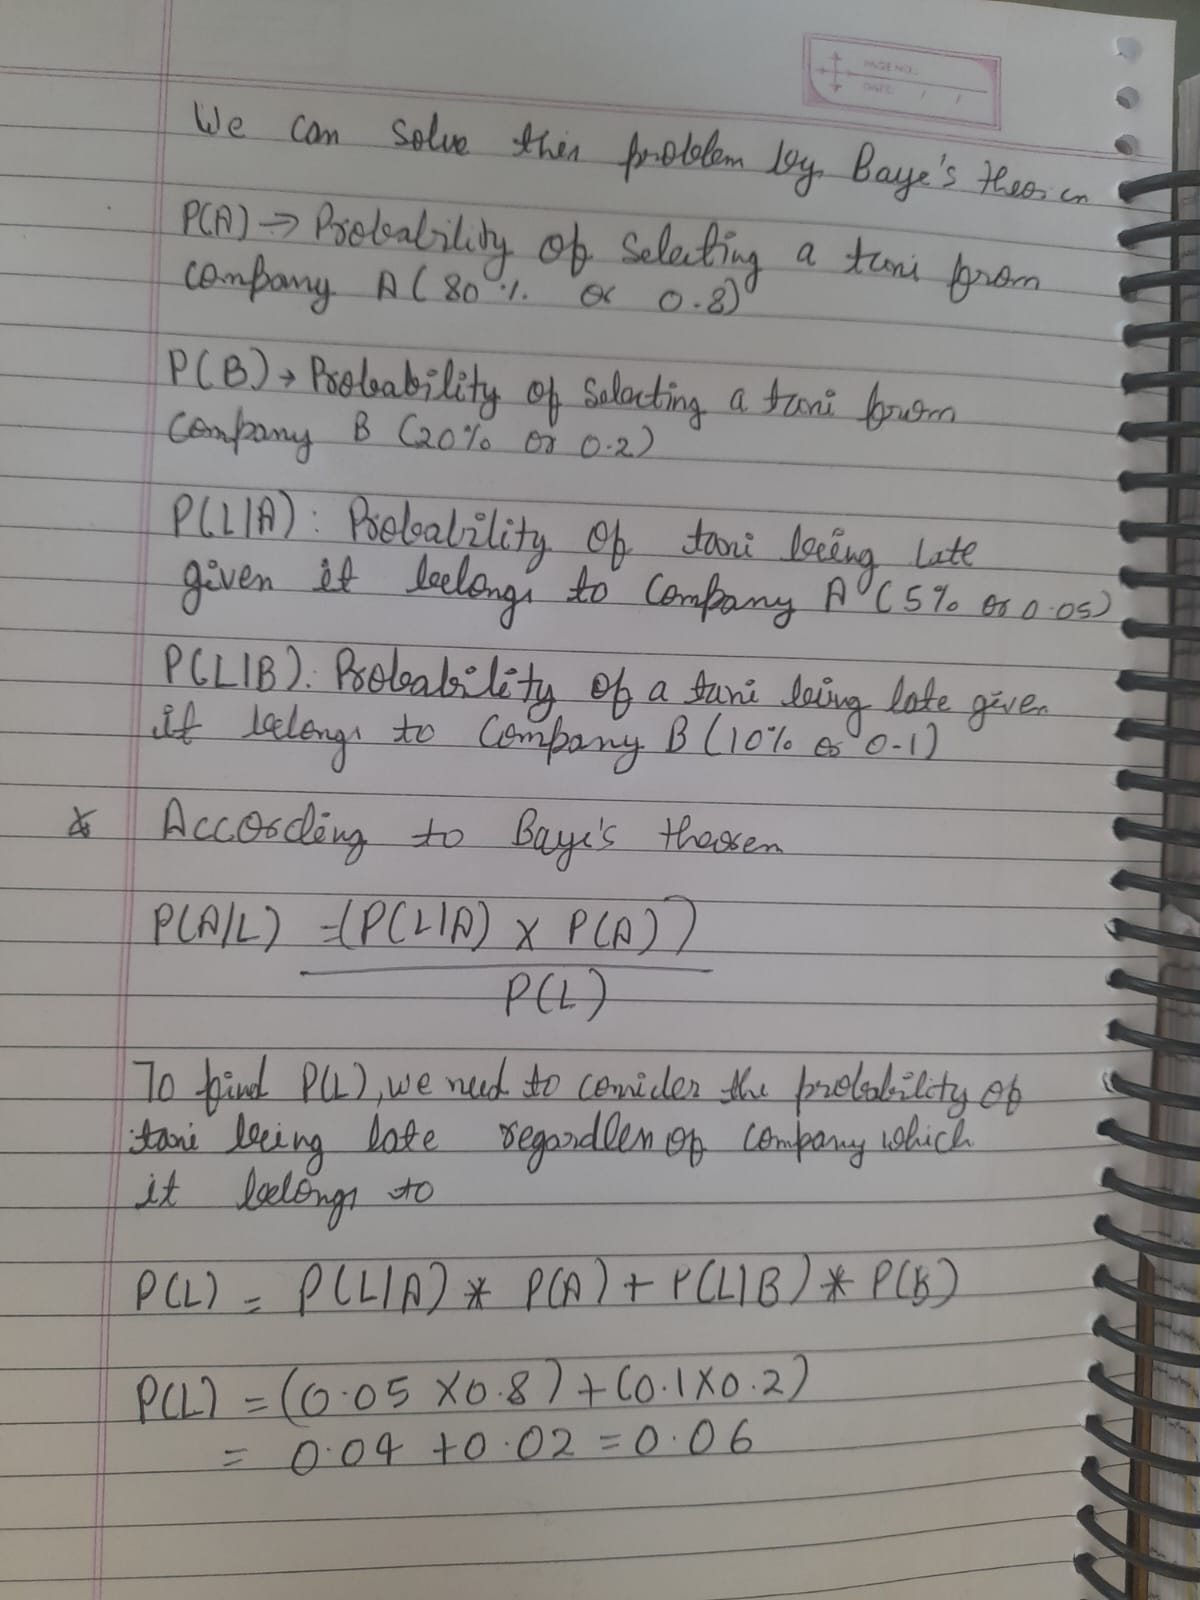 PAGE NO.:
DATE: / /
We can solve this problem by Baye's theorem
P(A) → Probability of Selecting a taxi from
company A (80% or 0.8)
P(B) → Probability of Selecting a taxi from
Company B (20% or 0.2)
P(L|A): Probability of taxi being late
given it belongs to Company A (5% or 0.05)
P(L|B): Probability of a taxi being late given
it belongs to Company B (10% or 0.1)
* According to Baye's theorem
P(A/L) = (P(L|A) × P(A))
P(L)
To find P(L), we need to consider the probability of
taxi being late regardless of company which
it belongs to
P(L) = P(L|A) * P(A) + P(L|B) * P(B)
P(L) = (0.05 × 0.8) + (0.1 × 0.2)
= 0.04 + 0.02 = 0.06